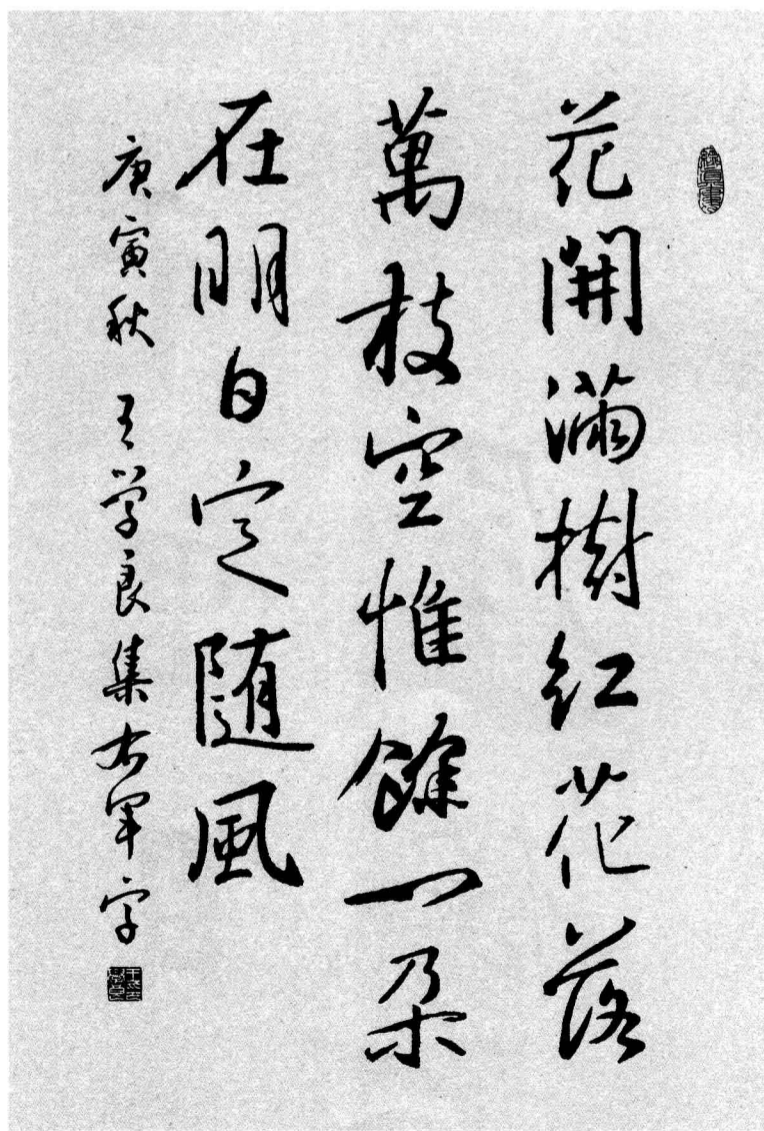 花開滿樹紅花落
萬枝空惟餘一朵
在明日定隨風
庚寅秋 王學良集右軍字